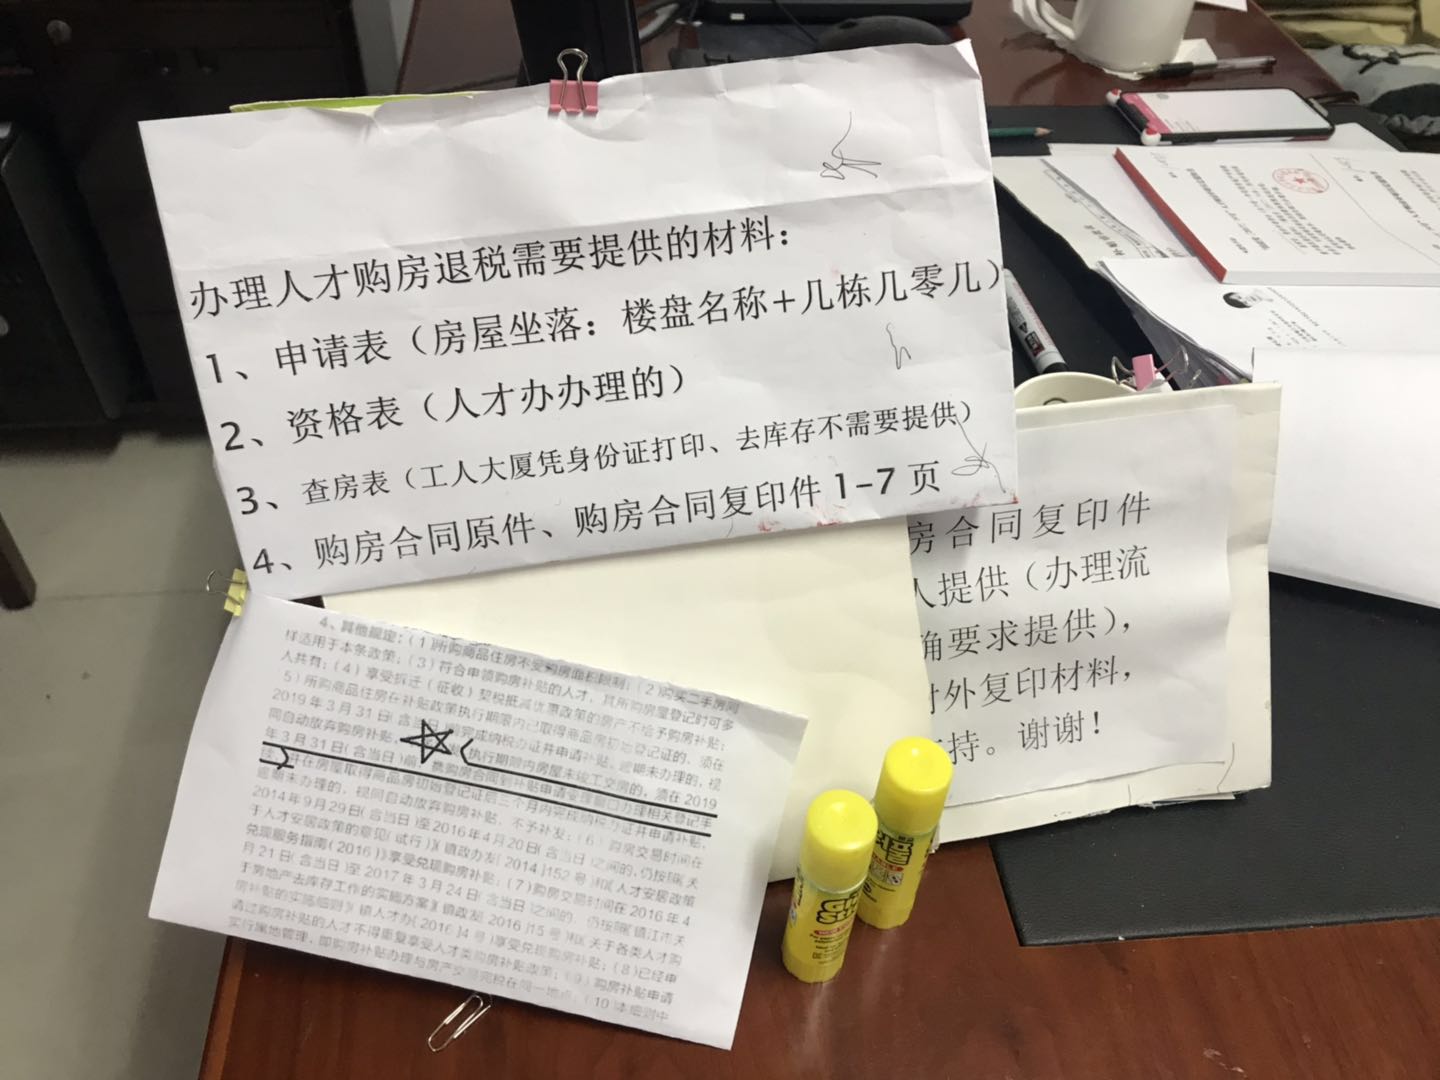 办理人才购房退税需要提供的材料：
1、申请表（房屋坐落：楼盘名称+几栋几零几）
2、资格表（人才办办理的）
3、查房表（工人大厦凭身份证打印、去库存不需要提供）
4、购房合同原件、购房合同复印件1-7页
房合同复印件
人提供（办理流
确要求提供），
对外复印材料，
持。谢谢！
4、其他规定：（1）所购商品住房不受购房面积限制；（2）购买二手房同
样适用于本条政策；（3）符合申领购房补贴的人才，其所购房屋登记时可多
人共有；（4）享受拆迁（征收）契税抵减优惠政策的房产不给予购房补贴；
5）所购商品住房在补贴政策执行期限内已取得商品房初始登记证的，须在
2019年3月31日（含当日）前完成纳税办证并申请补贴，逾期未办理的，视
同自动放弃购房补贴，执行期限内房屋未竣工交房的，须在2019
年3月31日（含当日）前，携购房合同到补贴申请受理窗口办理相关登记手
续，并在房屋取得商品房初始登记证后三个月内完成纳税办证并申请补贴，
逾期未办理的，视同自动放弃购房补贴，不予补发；（6）购房交易时间在
2014年9月29日（含当日）至2016年4月20日（含当日）之间的，仍按照《关
于人才安居政策的意见（试行）》（镇政办发［2014］152号）和《人才安居政策
兑现服务指南（2016）》享受兑现购房补贴；（7）购房交易时间在2016年4
月21日（含当日）至2017年3月24日（含当日）之间的，仍按照《镇江市关
于房地产去库存工作的实施方案》（镇政发［2016］15号）和《关于各类人才购
房补贴的实施细则》（镇人才办［2016］4号）享受兑现购房补贴；（8）已经申
请过购房补贴的人才不得重复享受人才类购房补贴政策；（9）购房补贴申请
实行属地管理，即购房补贴办理与房产交易完税在同一地点；（10）本细则中
GLUE
STICK